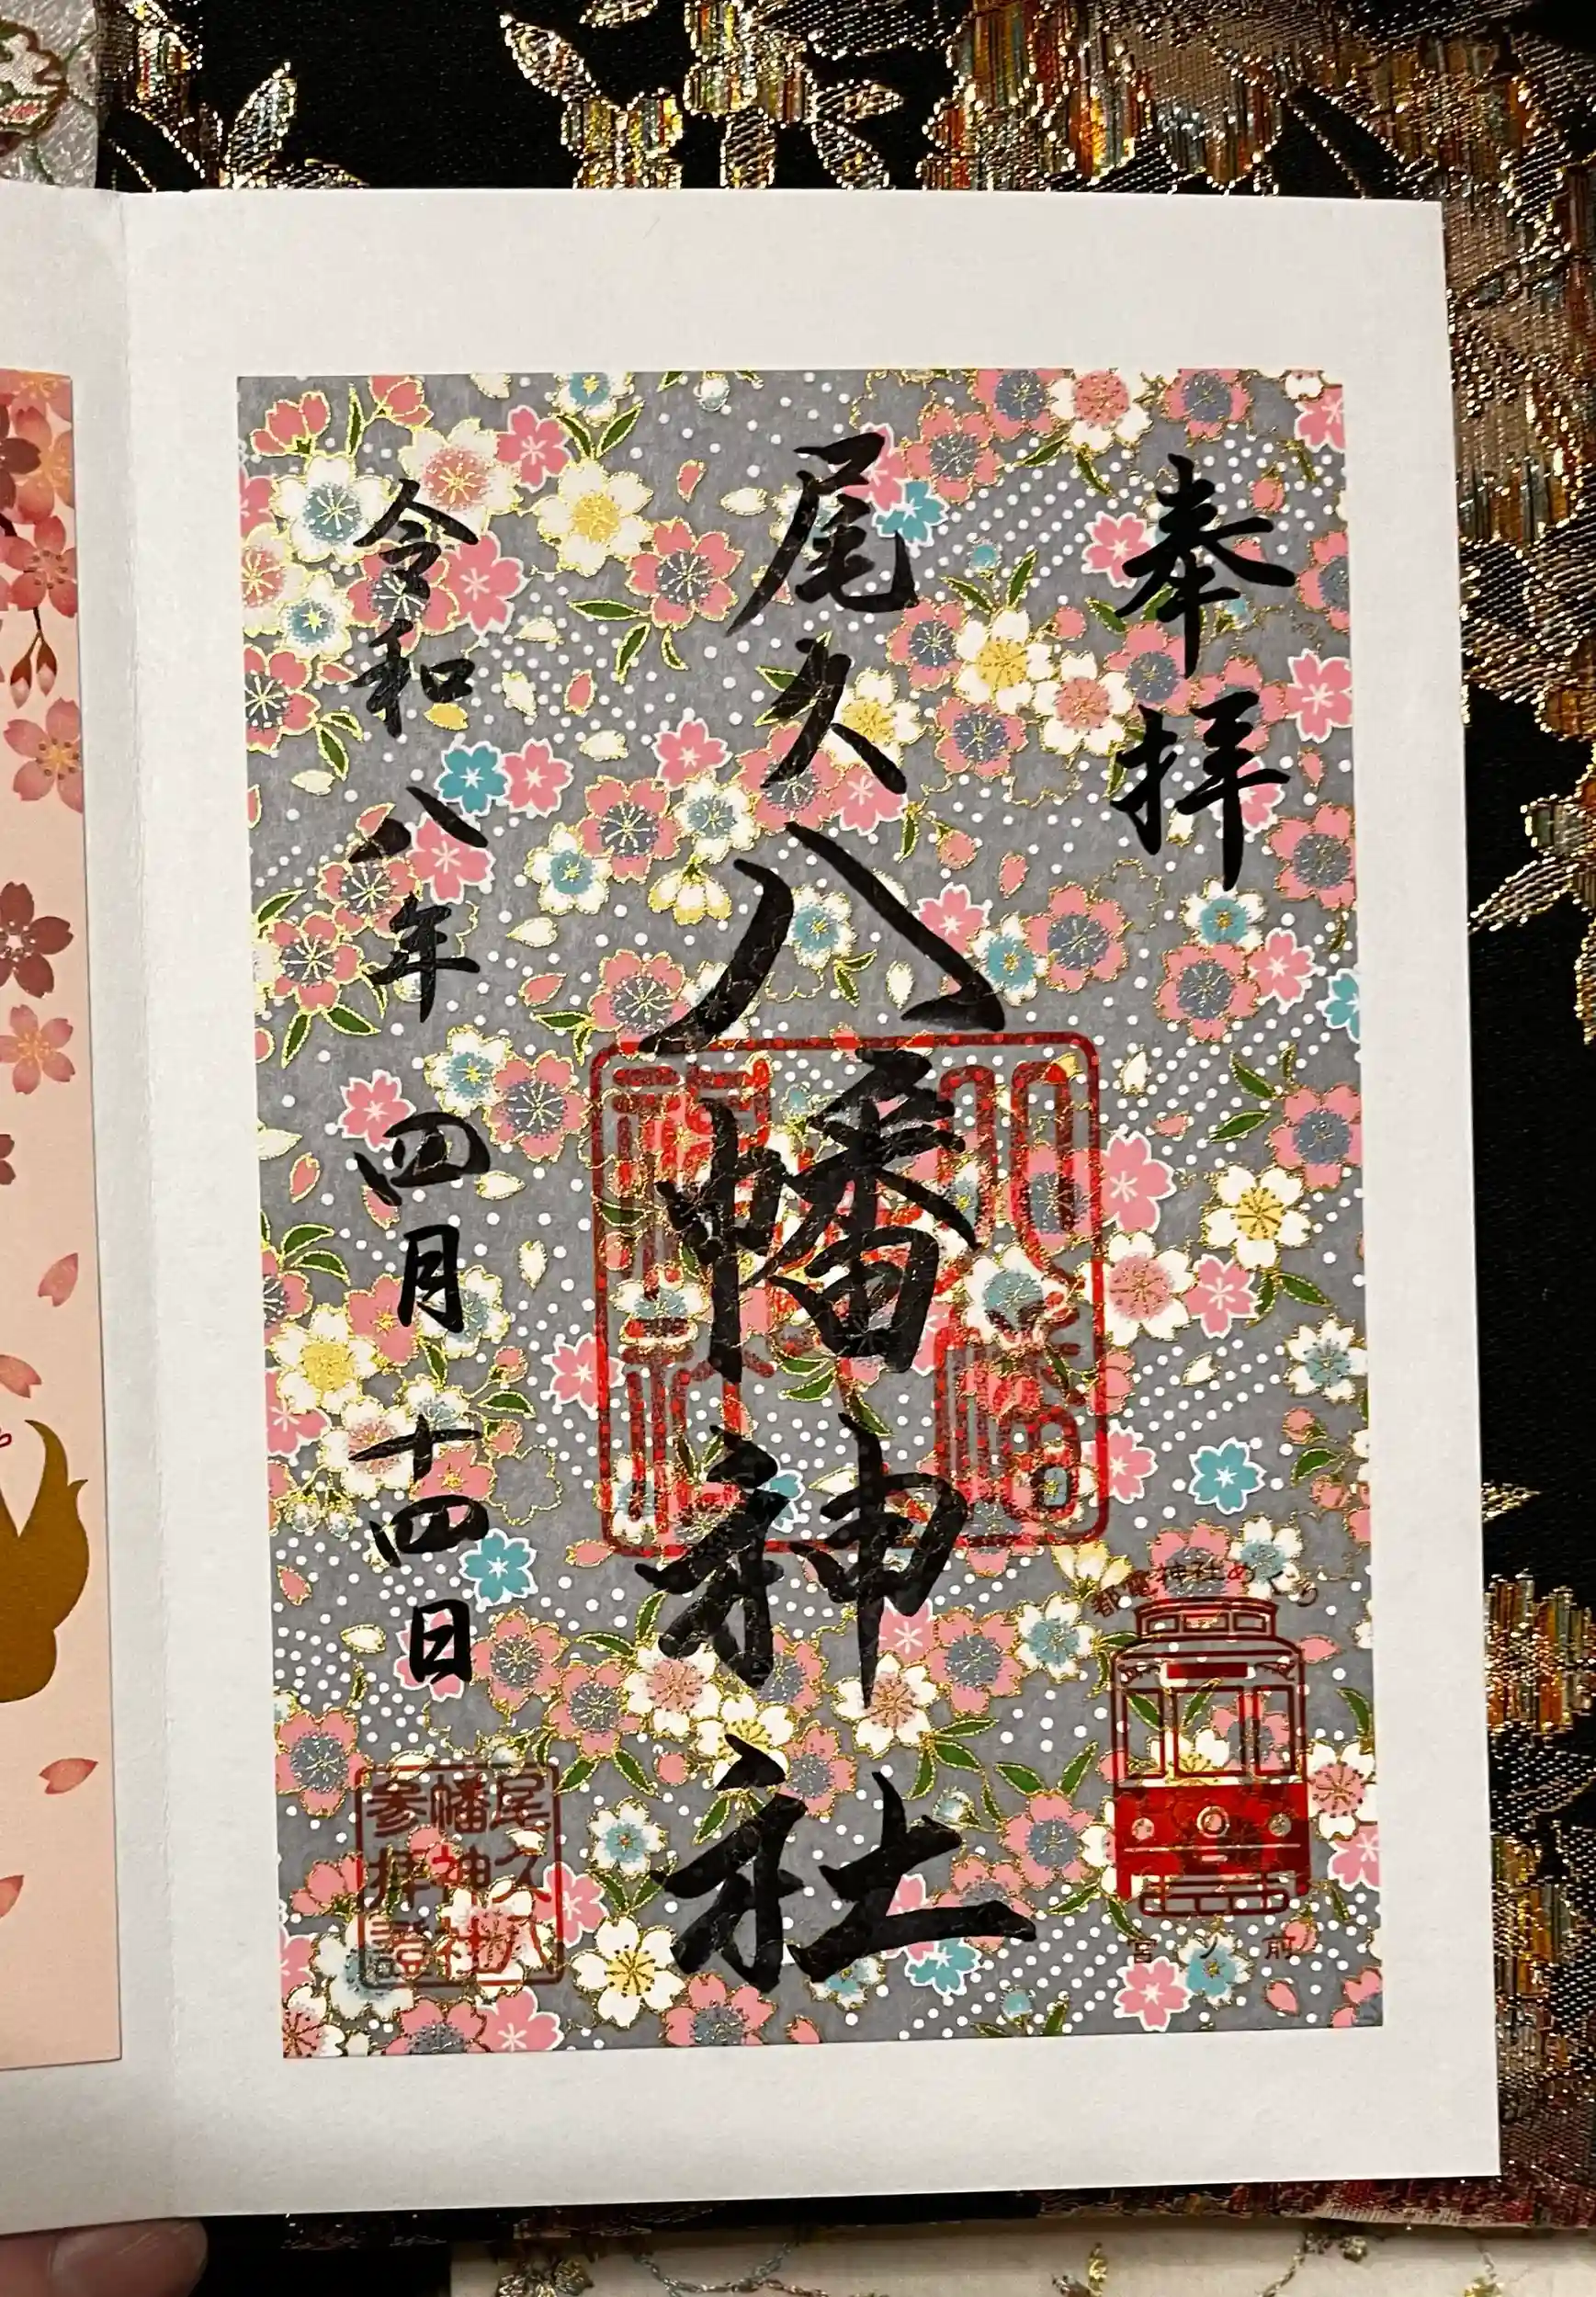 奉拝
尾久八幡神社
令和八年 四月 十四日
都電神社めぐり
宮ノ前
尾久八
幡神社
参拝證